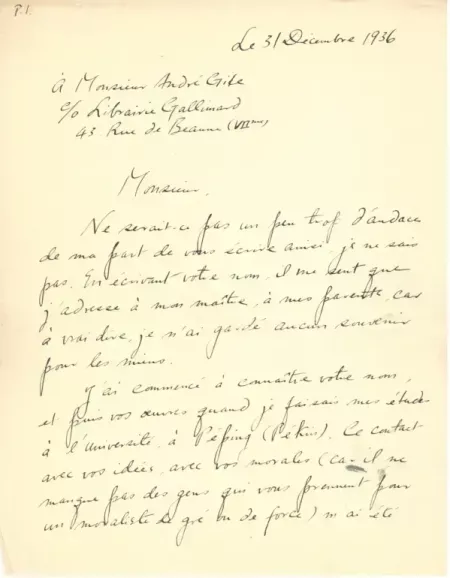 P.1
Le 31 Décembre 1936
À Monsieur André Gide
c/o Librairie Gallimard
43 Rue de Beaune (VIIme)
Monsieur,
Ne serait-ce pas un peu trop d'audace
de ma part de vous écrire ainsi, je ne sais
pas. En écrivant votre nom, il me sent que
j'adresse à mon maître, à mes parents, car
à vrai dire, je n'ai gardé aucun souvenir
pour les miens.
J'ai commencé à connaître votre nom,
et puis vos œuvres quand je faisais mes études
à l'université, à Péping (Pékin). Ce contact
avec vos idées, avec vos morales (car il ne
manque pas des gens qui vous prennent pour
un moraliste de gré ou de force) m'a été